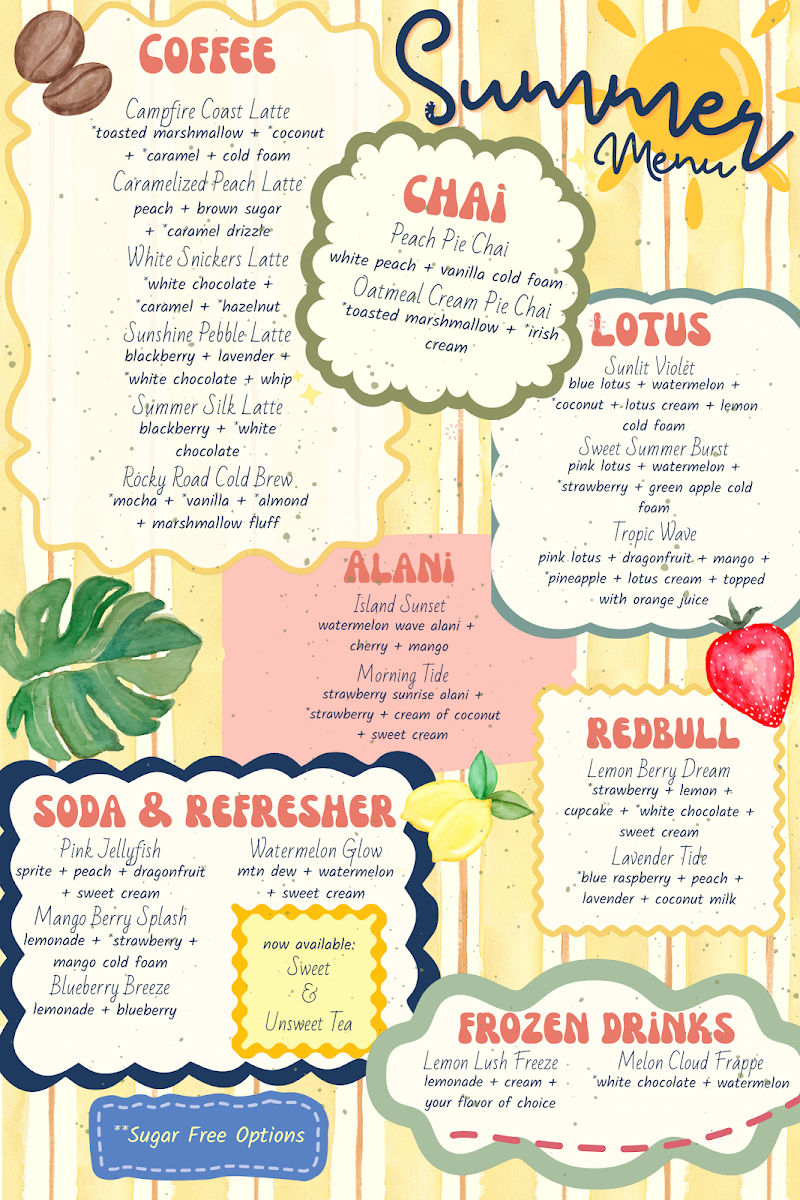 Summer
Menu
COFFEE
Campfire Coast Latte
*toasted marshmallow + *coconut
+ *caramel + cold foam
Caramelized Peach Latte
peach + brown sugar
+ *caramel drizzle
White Snickers Latte
*white chocolate +
*caramel + *hazelnut
Sunshine Pebble Latte
blackberry + lavender +
*white chocolate + whip
Summer Silk Latte
blackberry + *white
chocolate
Rocky Road Cold Brew
*mocha + *vanilla + *almond
+ marshmallow fluff
CHAi
Peach Pie Chai
white peach + vanilla cold foam
Oatmeal Cream Pie Chai
*toasted marshmallow + *irish
cream
LOTUS
Sunlit Violet
blue lotus + watermelon +
*coconut + lotus cream + lemon
cold foam
Sweet Summer Burst
pink lotus + watermelon +
*strawberry + green apple cold
foam
Tropic Wave
pink lotus + dragonfruit + mango +
*pineapple + lotus cream + topped
with orange juice
ALANi
Island Sunset
watermelon wave alani +
cherry + mango
Morning Tide
strawberry sunrise alani +
*strawberry + cream of coconut
+ sweet cream
REDBULL
Lemon Berry Dream
*strawberry + lemon +
cupcake + *white chocolate +
sweet cream
Lavender Tide
*blue raspberry + peach +
lavender + coconut milk
SODA & REFRESHER
Pink Jellyfish
sprite + peach + dragonfruit
+ sweet cream
Mango Berry Splash
lemonade + *strawberry +
mango cold foam
Blueberry Breeze
lemonade + blueberry
Watermelon Glow
mtn dew + watermelon
+ sweet cream
now available:
Sweet
&
Unsweet Tea
FROZEN DRiNKS
Lemon Lush Freeze
lemonade + cream +
your flavor of choice
Melon Cloud Frappe
*white chocolate + watermelon
**Sugar Free Options